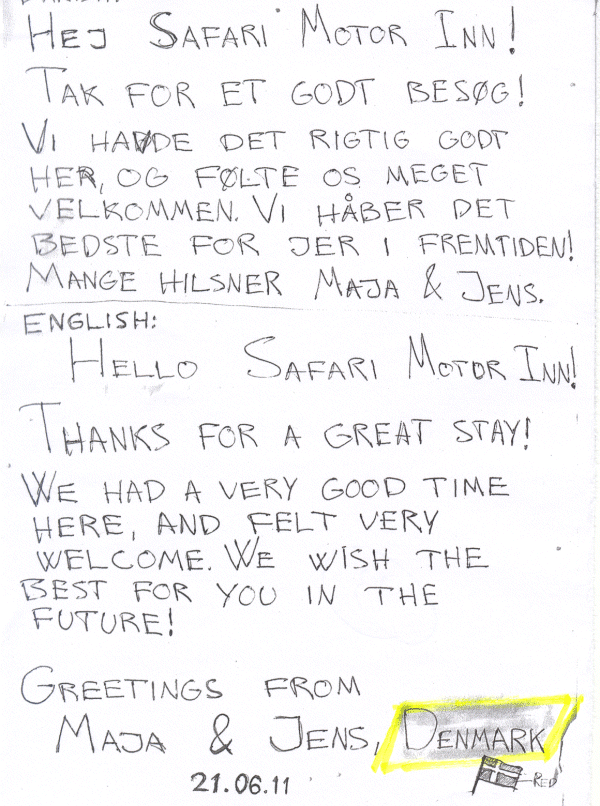 HEJ SAFARI MOTOR INN!
TAK FOR ET GODT BESØG!
VI HAVDE DET RIGTIG GODT
HER, OG FØLTE OS MEGET
VELKOMMEN. VI HÅBER DET
BEDSTE FOR JER I FREMTIDEN!
MANGE HILSNER MAJA & JENS.
ENGLISH:
HELLO SAFARI MOTOR INN!
THANKS FOR A GREAT STAY!
WE HAD A VERY GOOD TIME
HERE, AND FELT VERY
WELCOME. WE WISH THE
BEST FOR YOU IN THE
FUTURE!
GREETINGS FROM
MAJA & JENS, DENMARK
21.06.11
RED